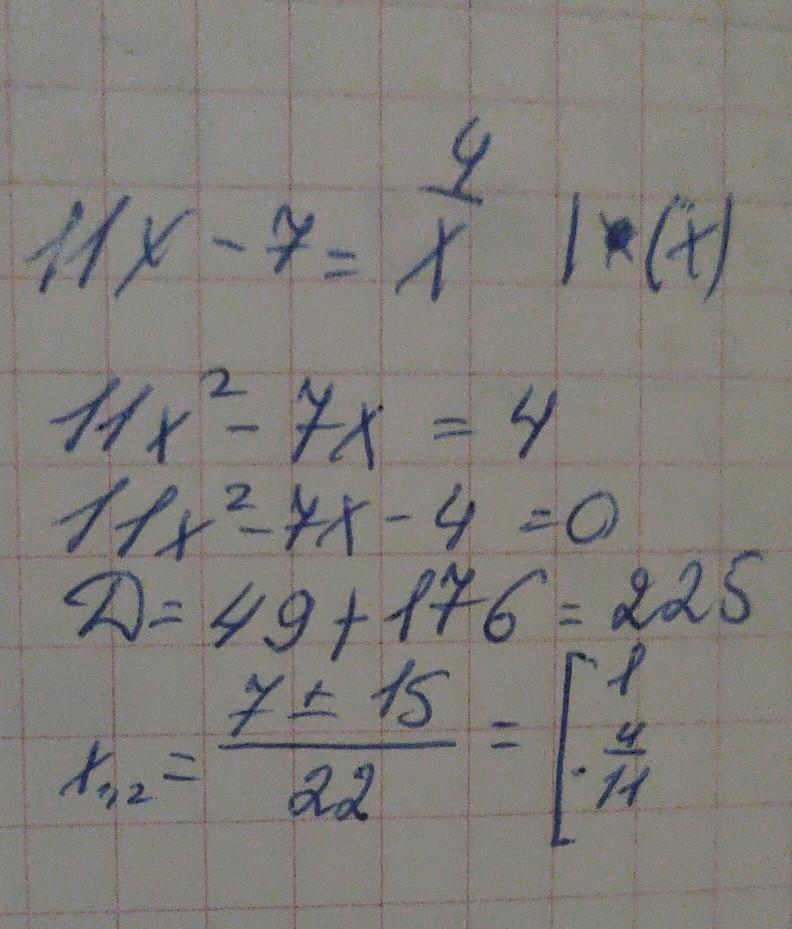 11x - 7 = 4/x |•(x)
11x² - 7x = 4
11x² - 7x - 4 = 0
D = 49 + 176 = 225
x₁,₂ = (7 ± 15)/22 = [1; -4/11